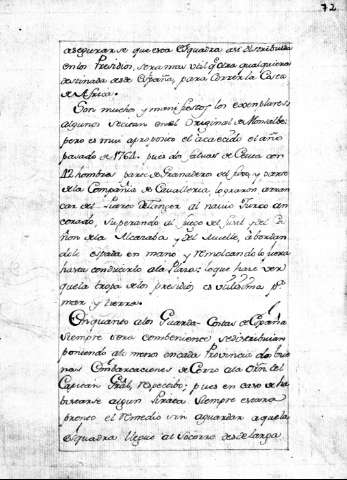 72
asegurarse que esta Esquadra asi distribuida
en los Presidios, sera mas util qe otra qualquiera
destinada desde España, para correr la Costa
de Africa.
Son muchos y manifiestos los exemplares
algunos se citan en el Original de Monsalbe
pero es mui aproposito el acaecido el año
pasado de 1762. pues dos falucas de Ceuta con
42 hombres parte de Granaderos del fixo, y parte
de la Compañia de Cavalleria lograron arran
car del Puerto de Tanger al navio Turco an
corado, superando al fuego del fusil, y del Ca
ñon de la Alcazaba y del Muelle, abordan
dole espada en mano y remolcando lo fuera
hasta conducirlo a la Plaza: lo que hace ver
que la tropa de los presidios es utilissima pr
mar y tierra.
En quanto a los Guarda Costas de España
siempre sera combeniente se distribuian
poniendo a lo menos en cada Provincia dos bue
nas Combarcaciones de Corzo a la Orn del
Capitan Gral respectibo; pues en caso de ha
bistarse algun Pirata siempre estara
pronto el remedio sin aguardar a que la
Esquadra llegue al socorro desde larga